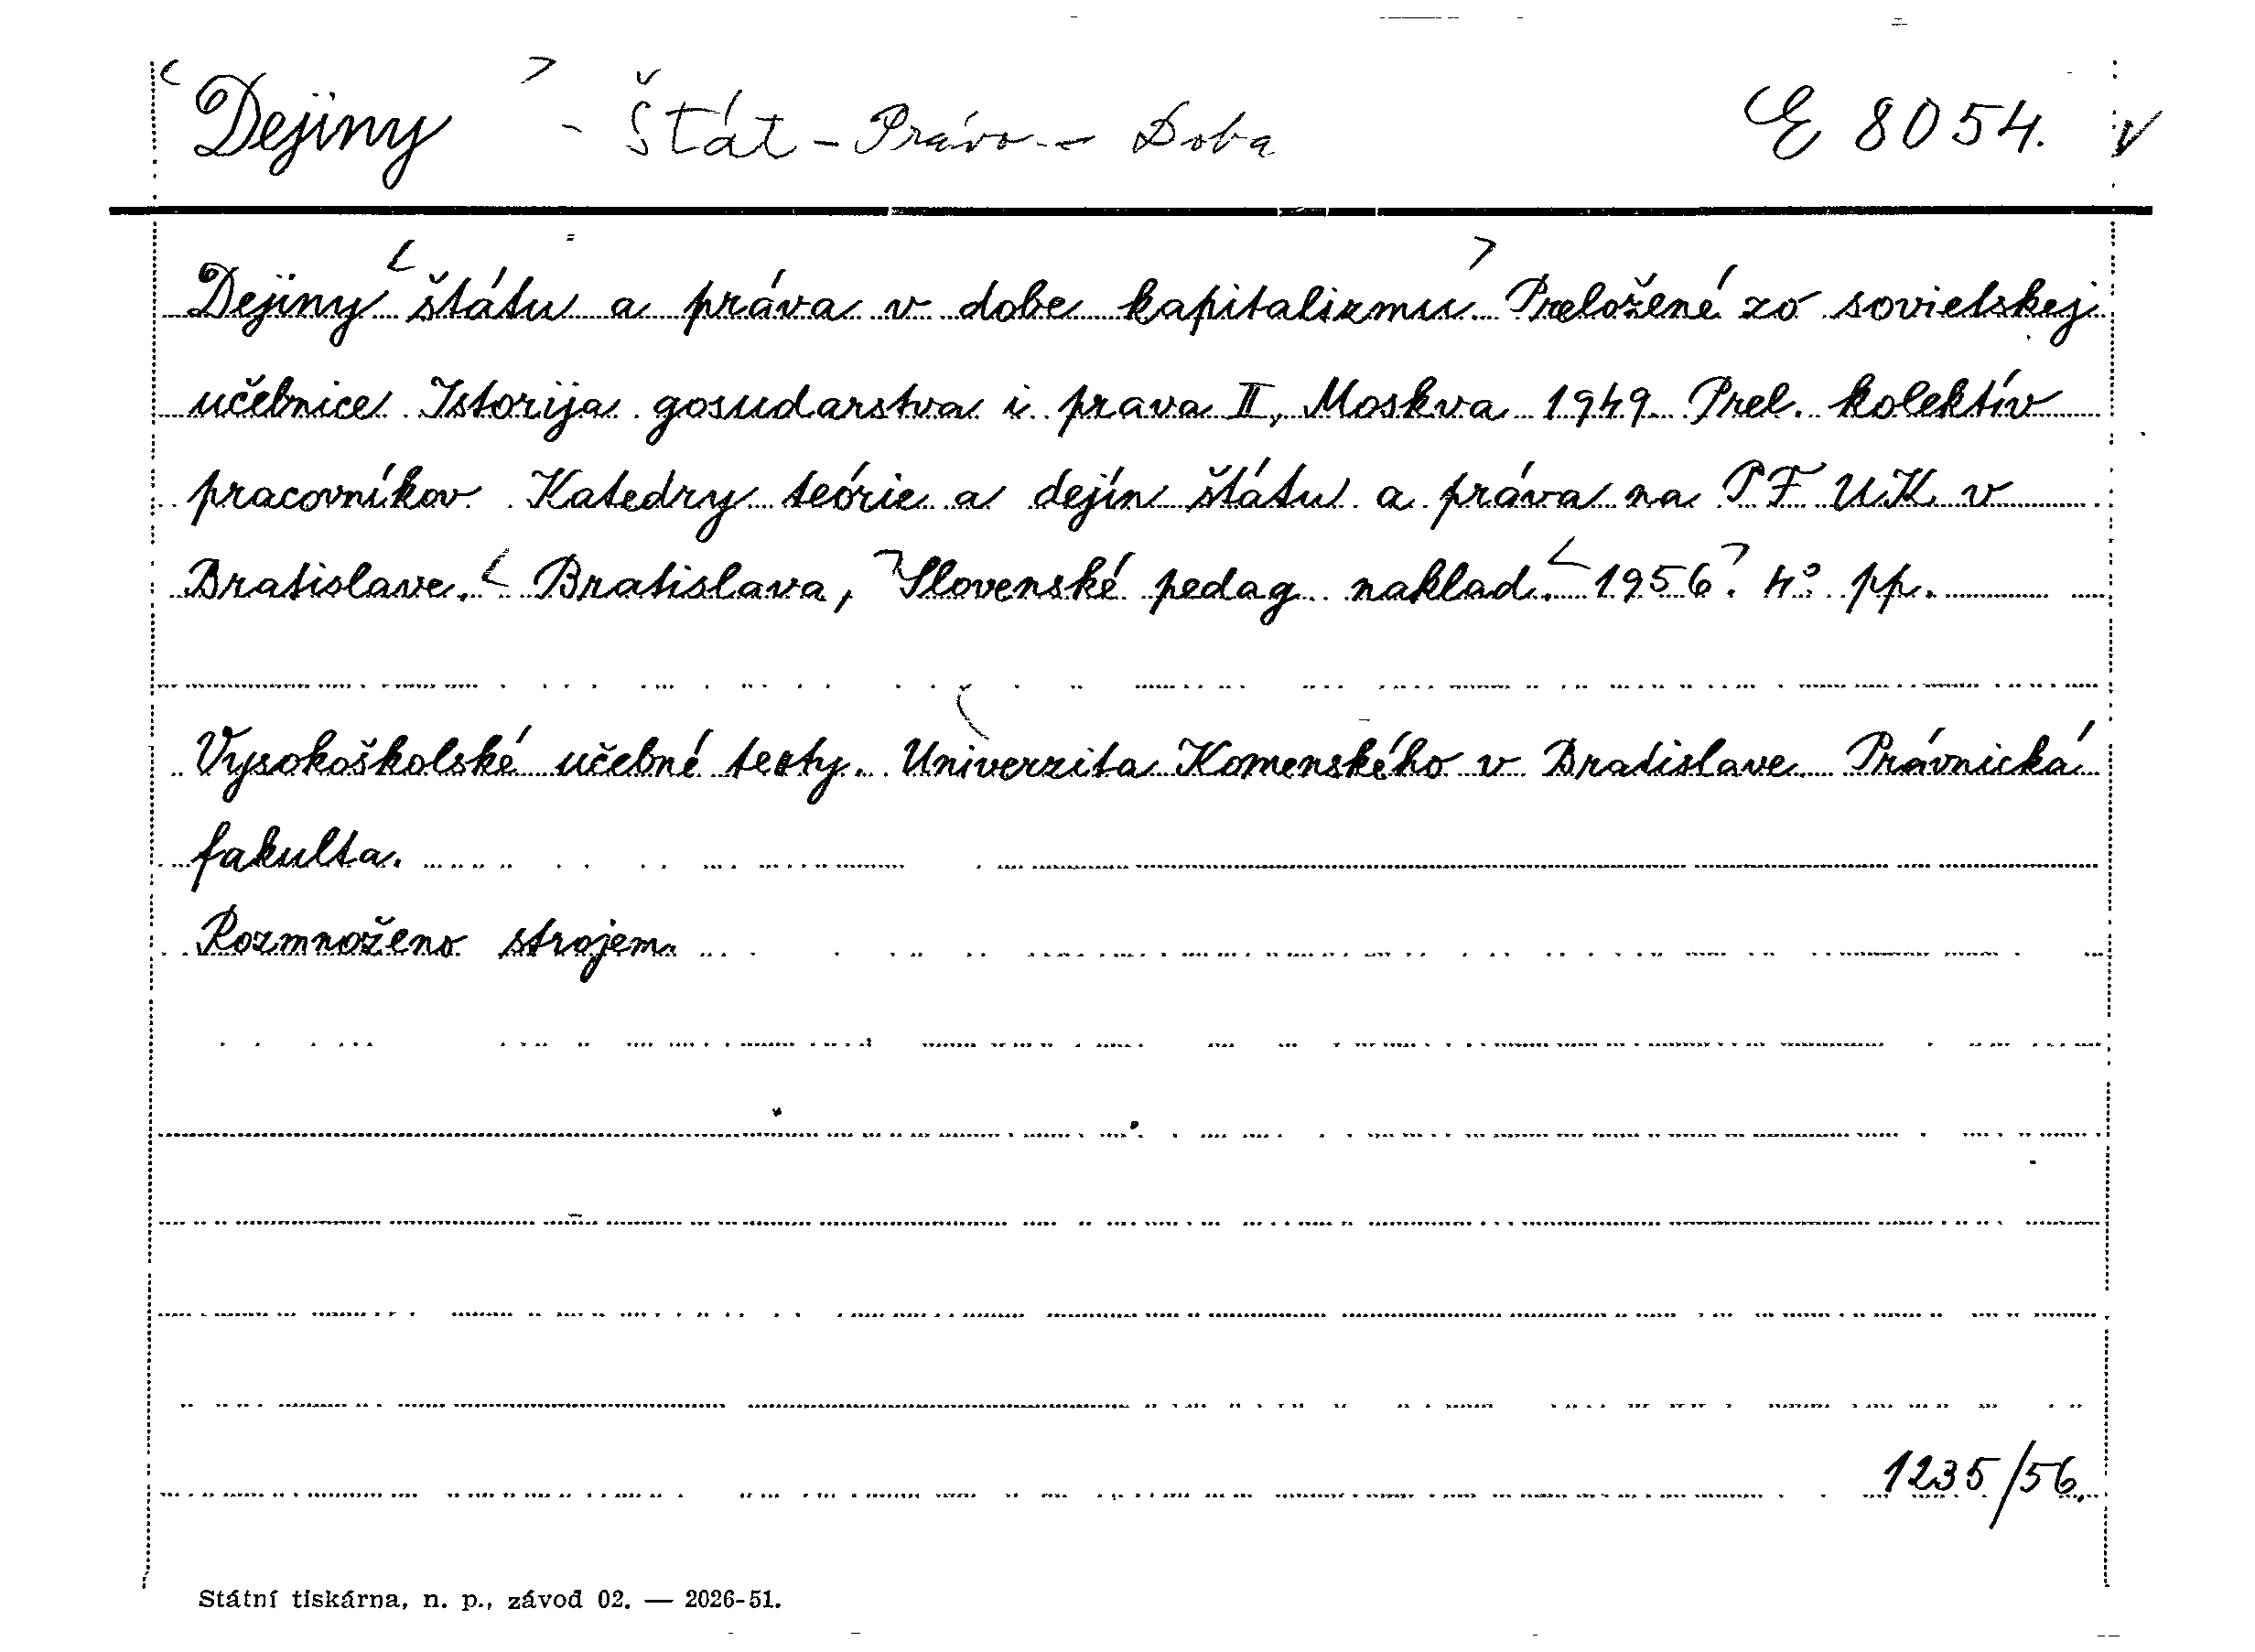 Dejiny - Štát - Právo - Doba E 8054. v
Dejiny štátu a práva v dobe kapitalizmu. Preložené zo sovietskej
učebnice Istorija gosudarstva i prava II, Moskva 1949. Prel. kolektív
pracovníkov Katedry teórie a dejín štátu a práva na PF UK v
Bratislave. Bratislava, Slovenské pedag. naklad. 1956. 4° pp.
Vysokoškolské učebné texty. Univerzita Komenského v Bratislave. Právnická
fakulta.
Rozmnoženo strojem.
1235/56.
Státní tiskárna, n. p., závod 02. — 2026-51.